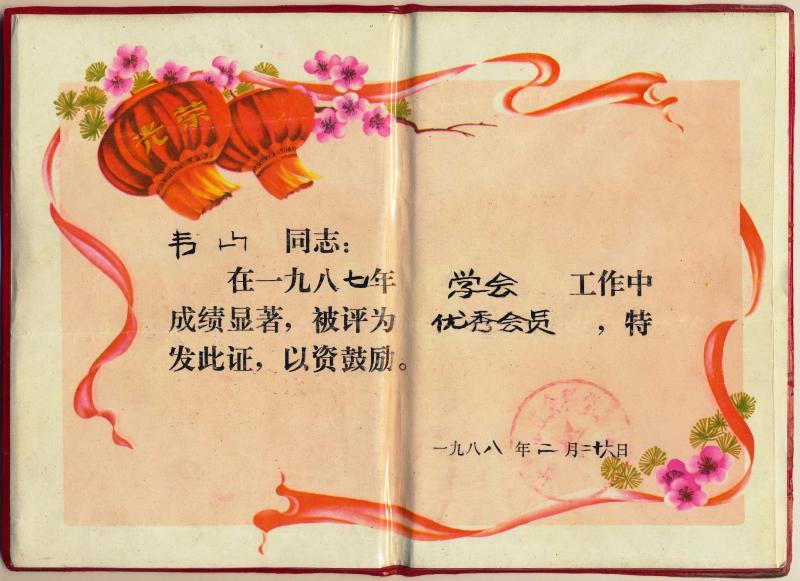 光荣
韦山 同志：
在一九八七年 学会 工作中
成绩显著，被评为 优秀会员 ，特
发此证，以资鼓励。
一九八八年二月二十六日